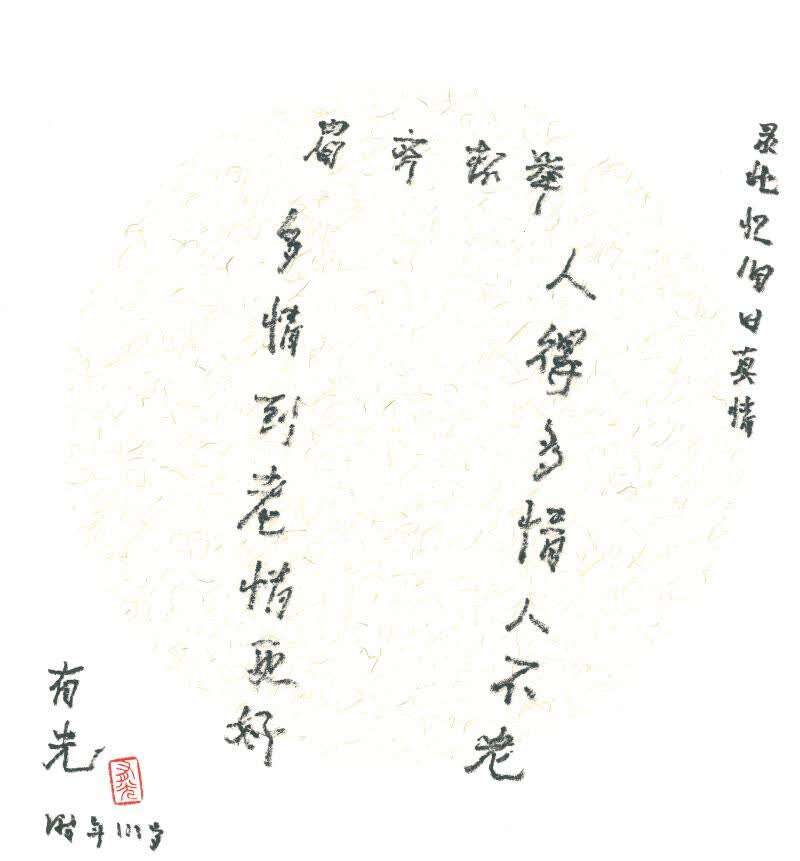 录此忆旧日真情
舉案齐眉
人得多情人不老
多情到老情更好
有光
有光
时年111岁